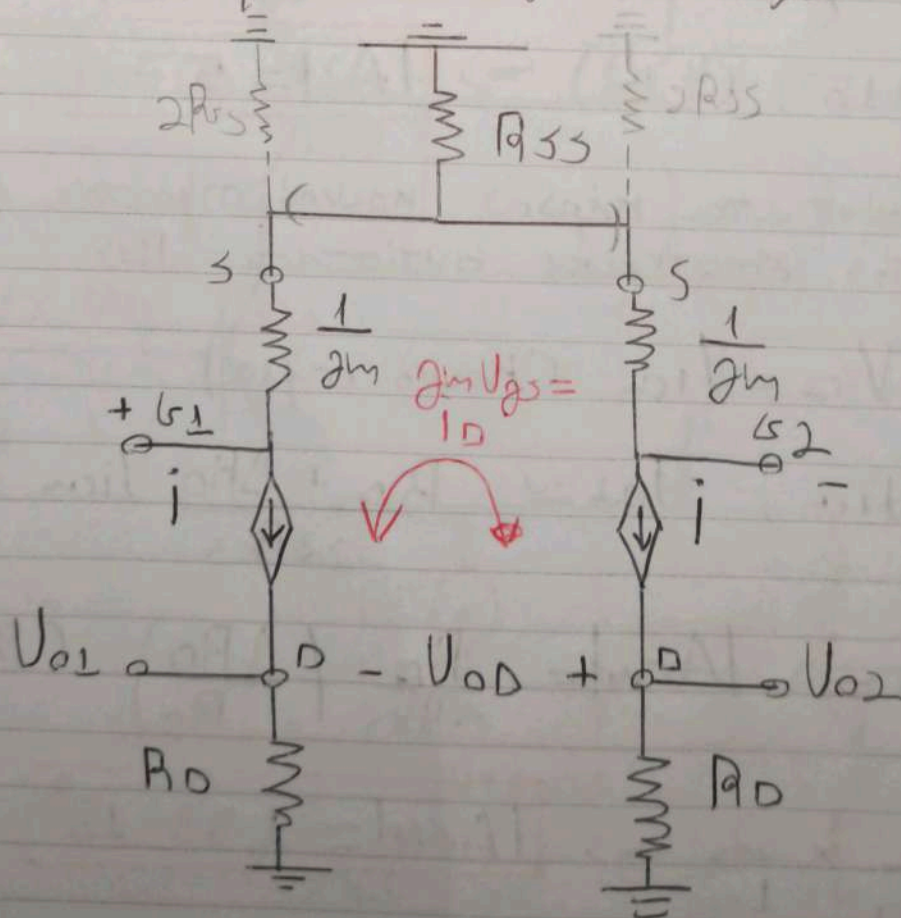 2RSS RSS 2RSS
S S
1/gm 1/gm
gmVgs =
ID
+ G1 G2 -
i i
VO1 D - VOD + D VO2
RD RD